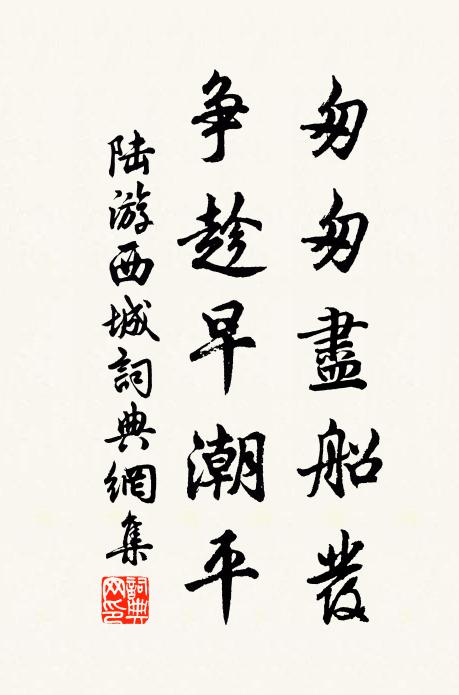 匆匆盡船發
爭趁早潮平
陆游西城詞典網集
詞典网印